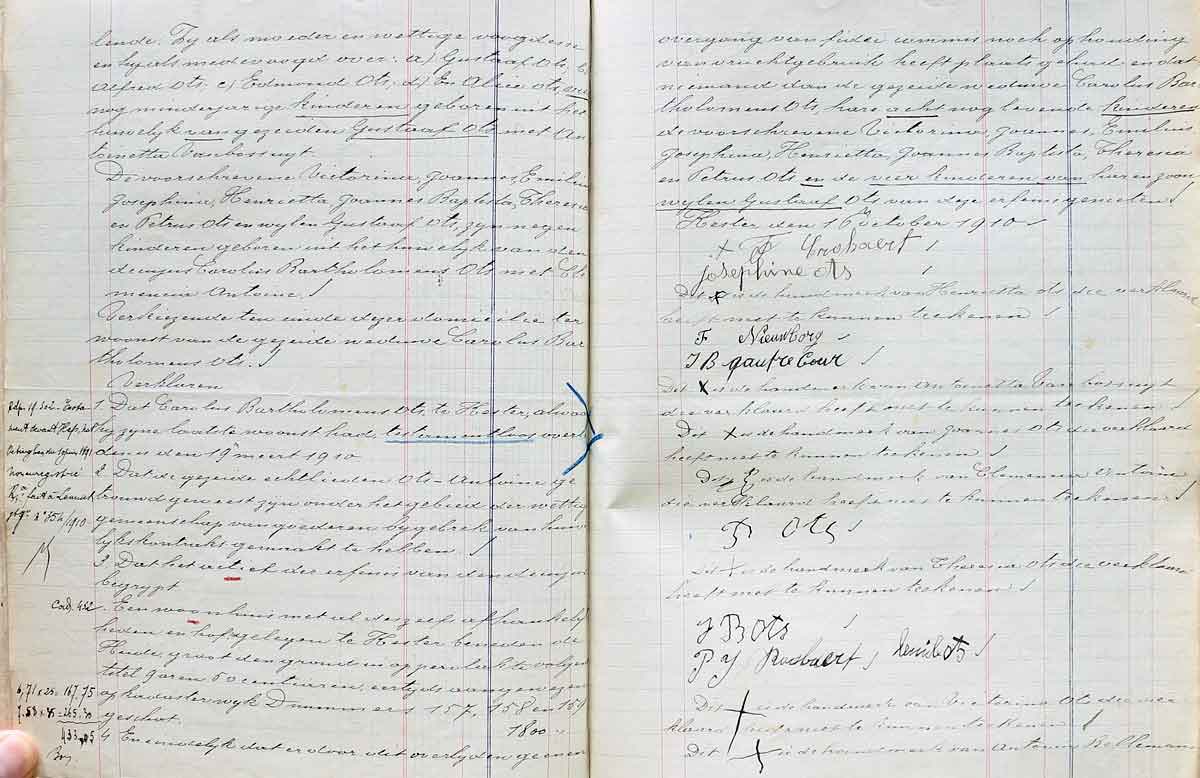 lende. Zij als moeder en wettige voogdesse
en hij als medevoogd over: a) Gustaaf Ots,
Alfred Ots, c) Edmond Ots, d) En Alice Ots,
nog minderjarige kinderen geboren uit het
huwelijk van gezeiden Gustaaf Ots met An
toinetta Vanbossuyt.
De voorschrevene Victorina, Joannes, Emilius
Josephina, Henrietta, Joannes Baptista, Theresia
en Petrus Ots en wylen Gustaaf Ots, zyn negen
kinderen geboren uit het huwelijk van den
decujus Carolus Bartholomeus Ots met Cle
mencia Antoine.
Verkiezende ten einde dezer domicilie ter
woonst van de gezeide weduwe Carolus Bar
tholomeus Ots.
Verklaren
1. Dat Carolus Bartholomeus Ots, te Hester, alwaar
hy zyne laatste woonst had, testamentloos over
leden is den 19n meert 1910
2. Dat de gezeide echtlieden Ots-Antoine ge
trouwd geweest zyn onder het gebied der wettige
gemeenschap van goederen by gebrek van huw
lijkskontrakt gemaakt te hebben
3 Dat het actief der erfenis van den decujus
begrypt
Cad. 422
Een woonhuis met al de zelfs afhankelijk
heden en hof gelegen te Hester beneden de
Heide, groot den grond in oppervlakte volgens
titel 9 aren 50 centiaren, eertijds aangewezen
op kadaster wyk D nummers 157, 158 en 159
geschat 1800 "
4 En eindelyk dat er door dit overlyden geenen
6,71 x 25 = 167.75
433,05
overgang van fidei commis noch ophouding
van vruchtgebruik heeft plaats gehad en dat
niemand dan de gezeide weduwe Carolus Bar
tholomeus Ots, hare acht nog levende kinderen
de voorschrevene Victorina, Joannes, Emilius
Josephina, Henrietta, Joannes Baptista, Theresia
en Petrus Ots en de vier kinderen van haren zoon
wylen Gustaaf Ots van deze erfenis genieten
Hester den 16n October 1910
Josephine ots
Dit x is de handmerk van Henrietta Ots die verklaard
heeft niet te kunnen teekenen
F Nieuwborg
J B gaufre Cour
Dit x is de handmerk van Antonetta Vanbossuyt
die verklaard heeft niet te kunnen teekenen
Dit x is de handmerk van Joannes Ots die verklaard
heeft niet te kunnen teekenen
Dit is de handmerk van Clemencia Antoine
die verklaard heeft niet te kunnen teekenen
P Ots
Dit + is de handmerk van Theresia Ots die verklaard
heeft niet te kunnen teekenen
J B Ots
P J Rosbaert Emil ots
Dit + is de handmerk van Victorina Ots die ver
klaard heeft niet te kunnen teekenen
Dit + is de handmerk van Antonius Bellemans